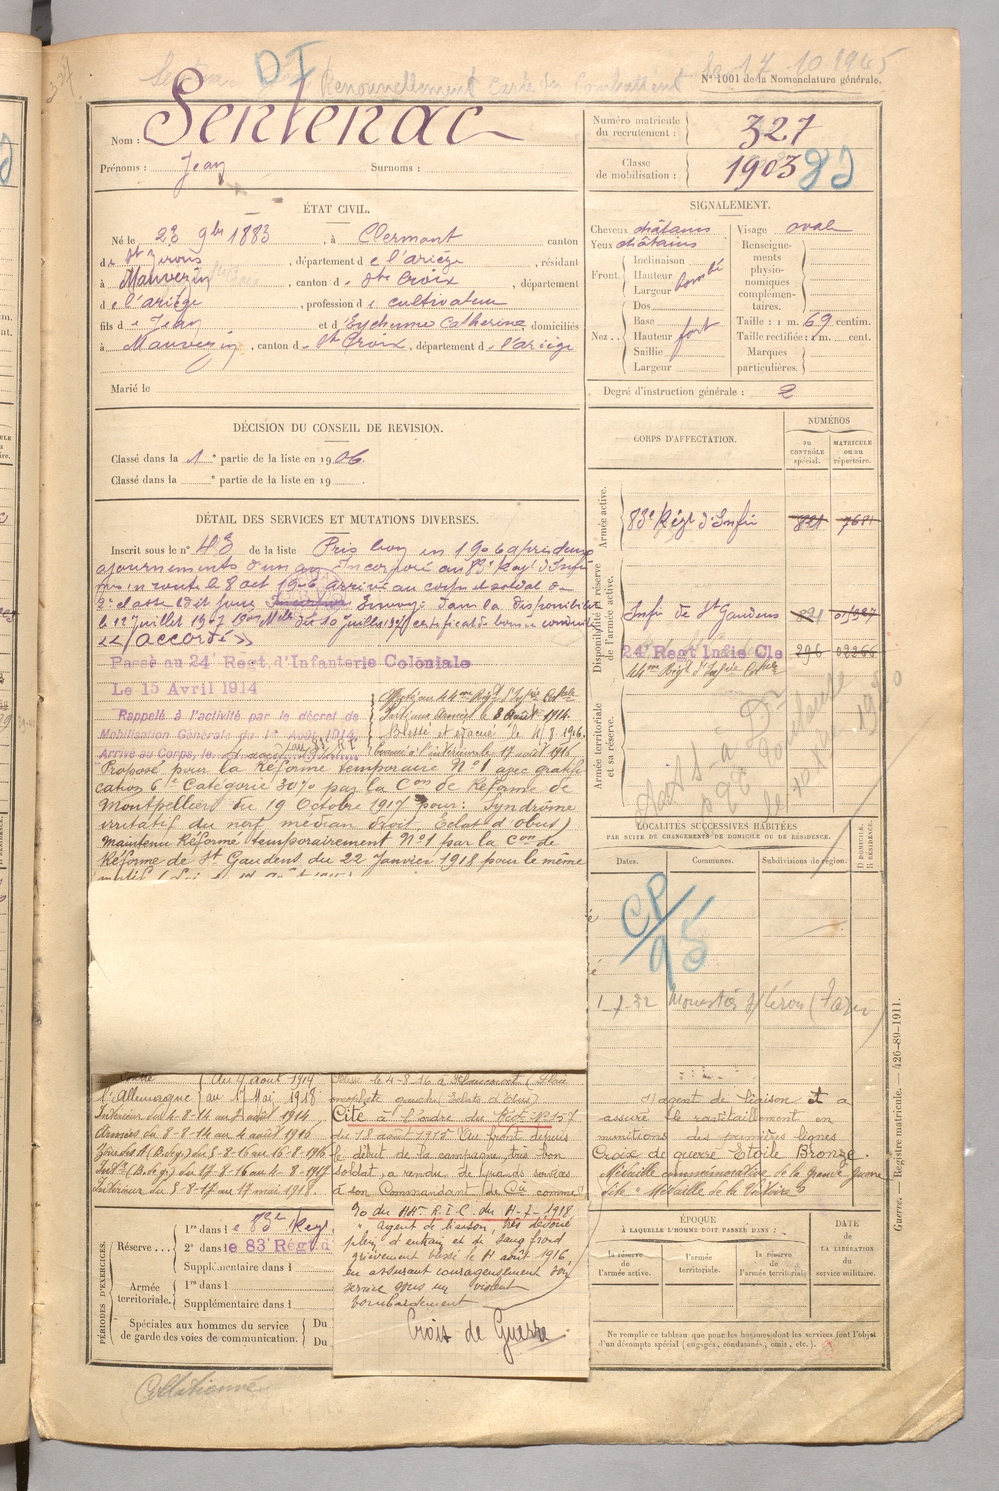 DI Renouvellement Carte du Combattant 17.10.1945
N° 1001 de la Nomenclature générale.
Nom : Sentenac
Prénoms : Jean Surnoms :
Numéro matricule du recrutement : 327
Classe de mobilisation : 1903
ÉTAT CIVIL.
Né le 23 9bre 1883, à Clermont canton
de St Girons, département de l'ariège, résidant
à Mauvezin, canton de Ste Croix, département
de l'ariège, profession de cultivateur
fils de Jean et d'Eychenne Catherine, domiciliés
à Mauvezin, canton de Ste Croix, département de l'ariège
Marié le
SIGNALEMENT.
Cheveux châtains
Yeux châtains
Front. Inclinaison Hauteur Largeur bombé
Nez.. Dos Base Hauteur Saillie Largeur fort
Visage ovale
Renseignements physionomiques complémentaires.
Taille : 1 m. 69 centim.
Taille rectifiée : 1 m. cent.
Marques particulières.
Degré d'instruction générale : 2
DÉCISION DU CONSEIL DE REVISION.
Classé dans la 1re partie de la liste en 1906.
Classé dans la e partie de la liste en 19
DÉTAIL DES SERVICES ET MUTATIONS DIVERSES.
Inscrit sous le n° 43 de la liste Pris bon en 1906 après deux
ajournements d'un an Incorporé au 83e Régt d'Infie
en route le 8 oct 1906 arrivé au corps et soldat de
2e classe ledit jour Envoyé dans la disponibilité
le 12 Juillet 1907 certificat de bonne conduite
<</accordé>>
Passé au 24e Regt. d'Infanterie Coloniale
Le 15 Avril 1914
Rappelé à l'activité par le décret de
Mobilisation Générale du 1er Août 1914.
Arrivé au Corps, le
Affecté au 44me Régt d'Infie Colale
Parti aux Armées le 8 Août 1914.
Blessé et évacué le 4.8.1916.
17 août 1916
Proposé pour la Réforme temporaire N°1 avec gratifi
cation 6e Catégorie 30% par la Con de Réforme de
Montpellier du 19 Octobre 1917 pour : Syndrôme
irritatif du nerf médian droit, Eclat d'obus)
maintenu Réformé temporairement N°1 par la Con de
Réforme de St Gaudens du 22 Janvier 1918 pour le même
CORPS D'AFFECTATION.
NUMÉROS
au CONTRÔLE spécial.
MATRICULE ou au répertoire.
Armée active.
83e Régt d'Infie 821 7681
Disponibilité et réserve de l'armée active.
Infie de St Gaudens 821
24e Regt Infie Cle 296 02266
44me Régt d'Infie Colale
Armée territoriale et sa réserve.
LOCALITÉS SUCCESSIVES HABITÉES
PAR SUITE DE CHANGEMENTS DE DOMICILE OU DE RÉSIDENCE.
Dates. Communes. Subdivisions de région. D DOMICILE. R RÉSIDENCE.
CP/95
Contre l'Allemagne du 4 août 1914 au 17 Mai 1918
Intérieur du 4-8-14 au 7 août 1914
Armées du 8-8-14 au 4 août 1916
Intérieur du 5-8-17 au 17 mai 1918.
Blessé le 4-8-16 à Flaucourt (Plaie
omoplate gauche Eclats d'Obus)
Cité à l'ordre du Régt N° 157
du 18 août 1915 "Au front depuis
le début de la campagne, très bon
soldat, a rendu de grands services
à son Commandant de Cie comme
agent de liaison et a
assuré le ravitaillement en
munitions des premières lignes
Croix de guerre Etoile Bronze.
Médaille commémorative de la Grande guerre
dite "Médaille de la Victoire"
du 44e R.I.C. du 4-7-1918
"Agent de liaison, très dévoué
plein d'entrain et de sang froid
grièvement blessé le 4 août 1916,
en assurant courageusement son
service sous un violent
bombardement
Croix de Guerre
PÉRIODES D'EXERCICES.
Réserve... 1re dans le 83e Regt.
2e dans le 83 Régt d
Supplémentaire dans l
Armée territoriale. 1re dans l
Supplémentaire dans l
Spéciales aux hommes du service de garde des voies de communication. Du
Du
ÉPOQUE
À LAQUELLE L'HOMME DOIT PASSER DANS :
la réserve de l'armée active.
l'armée territoriale.
la réserve de l'armée territoriale
DATE DE LA LIBÉRATION DU service militaire.
Ne remplir ce tableau que pour les hommes dont les services font l'objet
d'un décompte spécial (engagés, condamnés, omis, etc.).
Guerre. — Registre matricule. — 426-89-1911.
Collationné